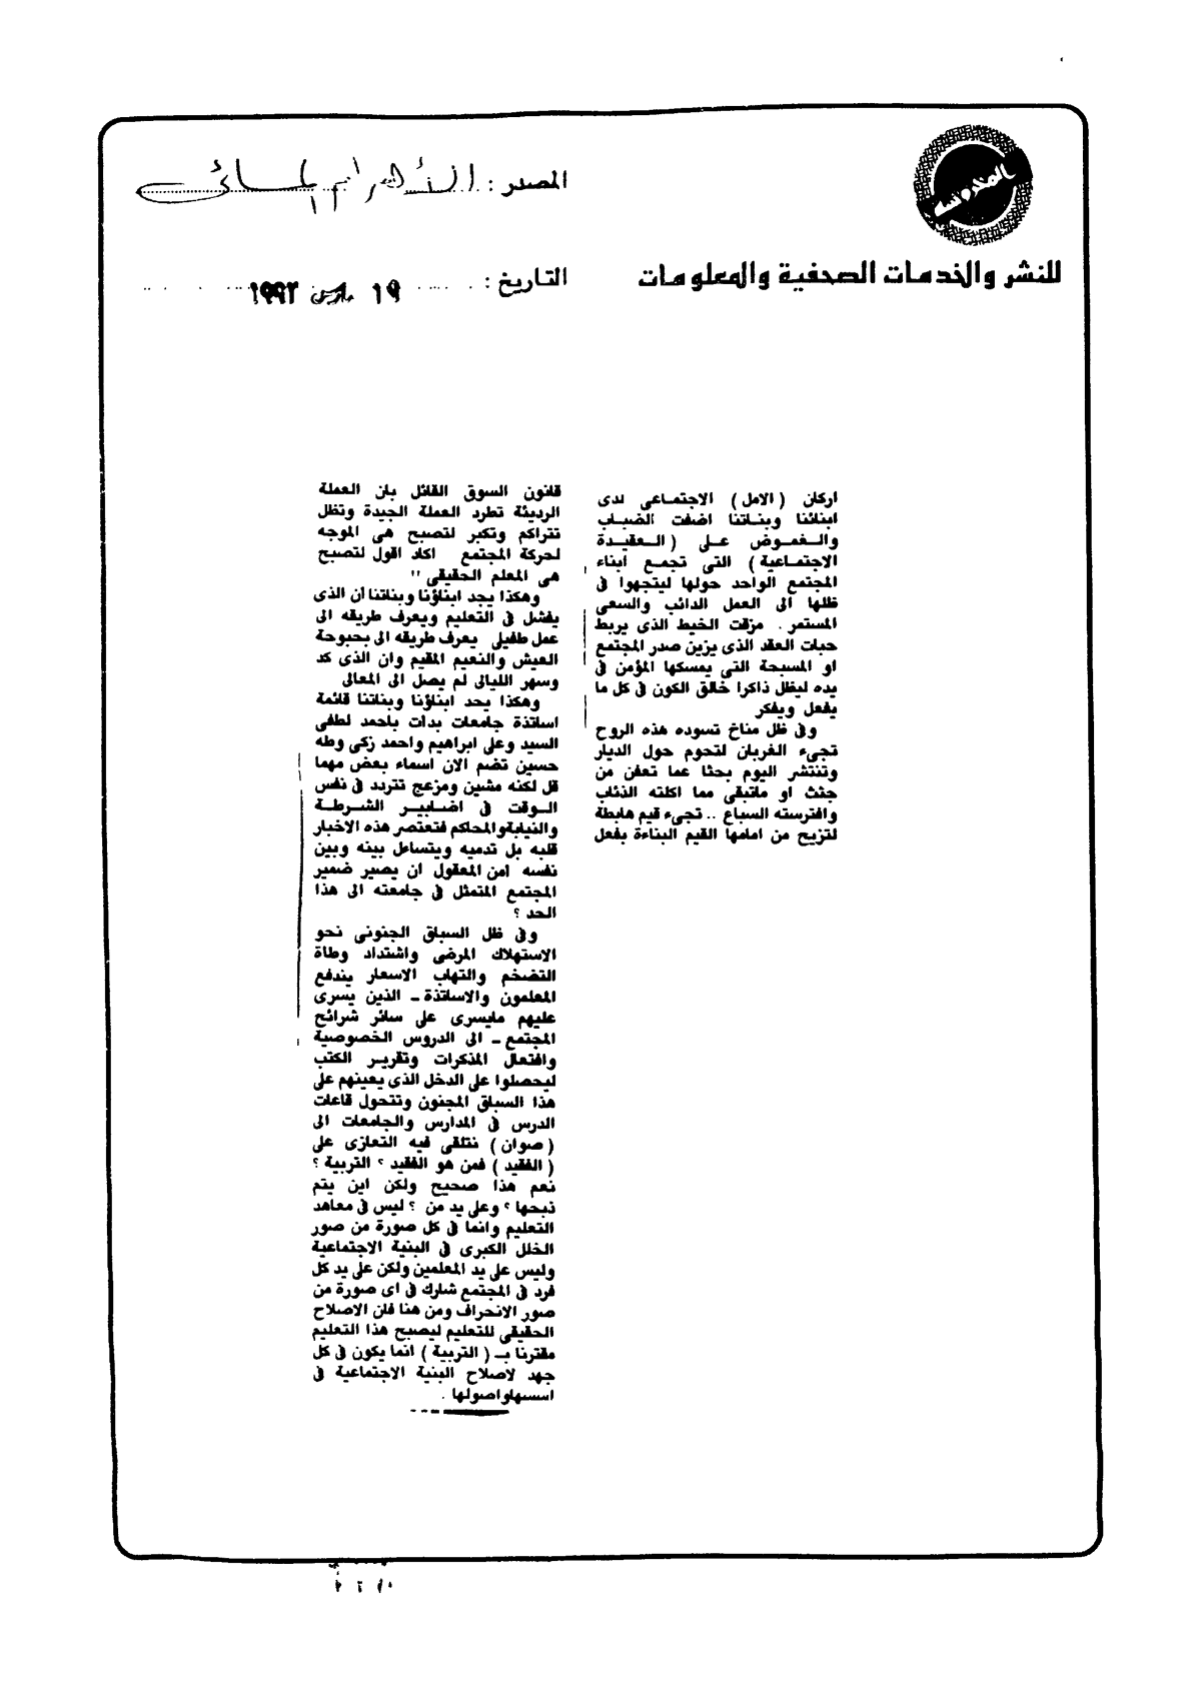 المصدر : الأهرام المسائى
للنشر والخدمات الصحفية والمعلومات
التاريخ : ١٩ مارس ١٩٩٢
اركان (الامل) الاجتماعى لدى
ابنائنا وبناتنا اضفت الضباب
والغموض على (العقيدة
الاجتماعية) التى تجمع ابناء
المجتمع الواحد حولها ليتجهوا فى
ظلها الى العمل الدائب والسعى
المستمر . مزقت الخيط الذى يربط
حبات العقد الذى يزين صدر المجتمع
او المسبحة التى يمسكها المؤمن فى
يده ليظل ذاكرا خالق الكون فى كل ما
يفعل ويفكر
وفى ظل مناخ تسوده هذه الروح
تجىء الغربان لتحوم حول الديار
وتنتشر البوم بحثا عما تعفن من
جثث او ماتبقى مما اكلته الذئاب
وافترسته السباع .. تجىء قيم هابطة
لتزيح من امامها القيم البناءة بفعل
قانون السوق القائل بان العملة
الرديئة تطرد العملة الجيدة وتظل
تتراكم وتكبر لتصبح هى الموجه
لحركة المجتمع اكاد اقول لتصبح
هى المعلم الحقيقى !!
وهكذا يجد ابناؤنا وبناتنا ان الذى
يفشل فى التعليم ويعرف طريقه الى
عمل طفيلى يعرف طريقه الى بحبوحة
العيش والنعيم المقيم وان الذى كد
وسهر الليالى لم يصل الى المعالى
وهكذا يجد ابناؤنا وبناتنا قائمة
اساتذة جامعات بدات باحمد لطفى
السيد وعلى ابراهيم واحمد زكى وطه
حسين تضم الان اسماء بعض مهما
قل لكنه مشين ومزعج تتردد فى نفس
الوقت فى اضابير الشرطة
والنيابة والمحاكم فتعتصر هذه الاخبار
قلبه بل تدميه ويتساءل بينه وبين
نفسه امن المعقول ان يصير ضمير
المجتمع المتمثل فى جامعته الى هذا
الحد ؟
وفى ظل السباق الجنونى نحو
الاستهلاك المرضى واشتداد وطاة
التضخم والتهاب الاسعار يندفع
المعلمون والاساتذة ـ الذين يسرى
عليهم مايسرى على سائر شرائح
المجتمع ـ الى الدروس الخصوصية
وافتعال المذكرات وتقرير الكتب
ليحصلوا على الدخل الذى يعينهم على
هذا السباق المجنون وتتحول قاعات
الدرس فى المدارس والجامعات الى
(صوان) نتلقى فيه التعازى على
(الفقيد) فمن هو الفقيد ؟ التربية ؟
نعم هذا صحيح ولكن اين يتم
ذبحها ؟ وعلى يد من ؟ ليس فى معاهد
التعليم وانما فى كل صورة من صور
الخلل الكبرى فى البنية الاجتماعية
وليس على يد المعلمين ولكن على يد كل
فرد فى المجتمع شارك فى اى صورة من
صور الانحراف ومن هنا فان الاصلاح
الحقيقى للتعليم ليصبح هذا التعليم
مقترنا بـ (التربية) انما يكون فى كل
جهد لاصلاح البنية الاجتماعية فى
اسسها واصولها .